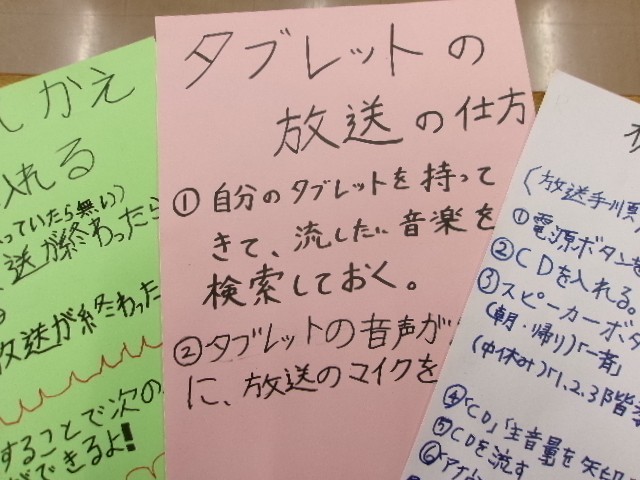 しかえ
入れる
っていたら無い)
送が終わったら
放送が終わった
することで次の
ができるよ!
タブレットの
放送の仕方
①自分のタブレットを持って
きて、流したい音楽を
検索しておく。
②タブレットの音声が
に、放送のマイクを
(放送手順
①電源ボタン
②CDを入れる。
③スピーカーボタ
(朝・帰り)「一斉」
(中休み)「1.2.3階
④「CD」「主音量を矢印
⑤CDを流す
⑥「アナ